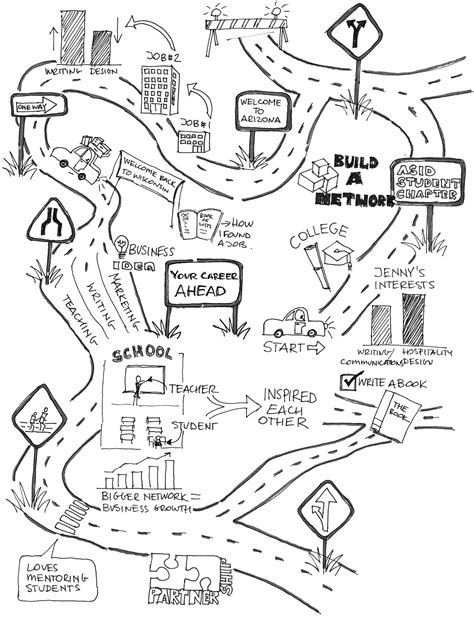 WRITING DESIGN
JOB #2
JOB #1
ONE WAY
WELCOME
TO
ARIZONA
WELCOME BACK
TO WISCONSIN
BUILD
A
NETWORK
ASID
STUDENT
CHAPTER
BOOK
OF
LISTS
→ HOW
I FOUND
A JOB
COLLEGE
BUSINESS
IDEA
YOUR CAREER
AHEAD
JENNY'S
INTERESTS
TEACHING
WRITING
MARKETING
START →
WRITING/
COMMUNICATIONS
HOSPITALITY
DESIGN
SCHOOL
TEACHER
STUDENT
INSPIRED
EACH
OTHER
WRITE A BOOK
THE
BOOK
BIGGER NETWORK =
BUSINESS GROWTH
LOVES
MENTORING
STUDENTS
PARTNER
SHIP